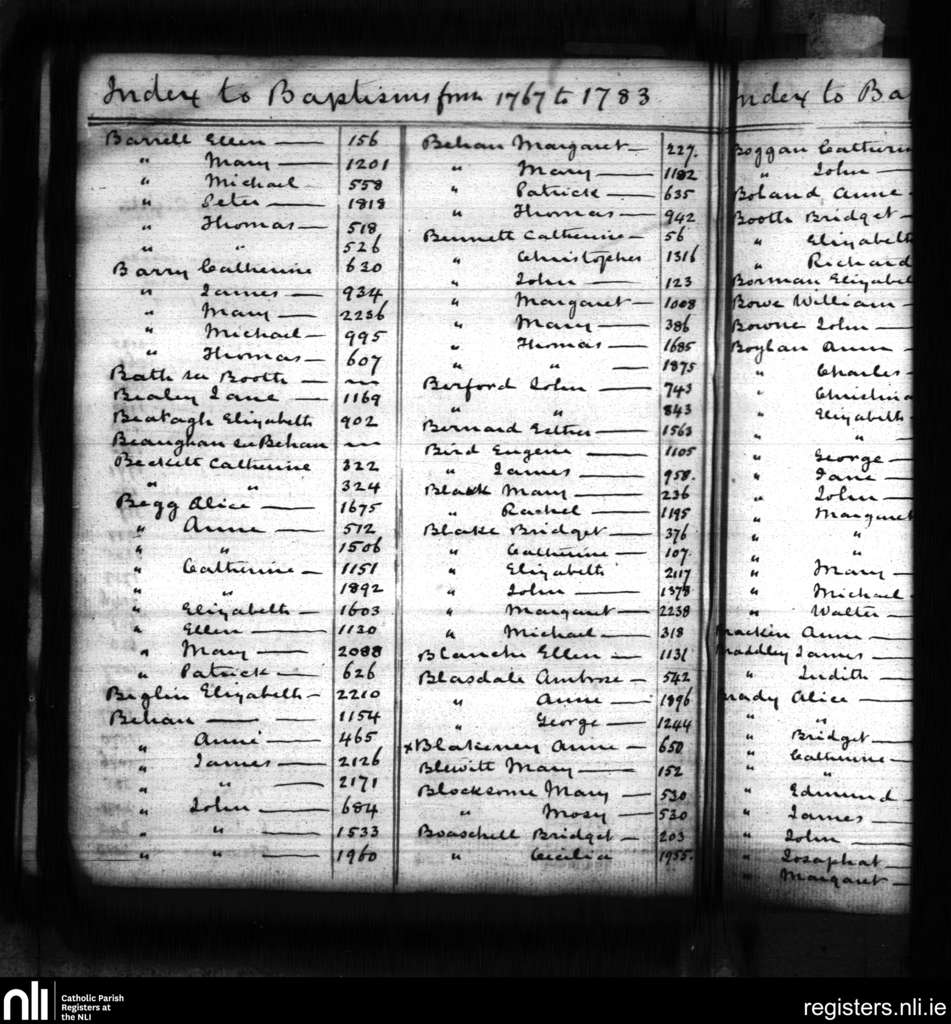 Index to Baptisms from 1767 to 1783
Barrell Ellen — 156
" Mary — 1201
" Michael 558
" Peter — 1818
" Thomas — 518
" " 526
Barry Catherine 630
" James — 934
" Mary — 2236
" Michael — 995
" Thomas — 607
Bath see Booth —
Bealey Jane — 1169
Beatagh Elizabeth 902
Beaughan see Behan
Beckett Catherine 322
" " 324
Begg Alice — 1675
" Anne — 512
" " 1506
" Catherine — 1151
" " 1892
" Elizabeth — 1603
" Ellen — 1130
" Mary — 2088
" Patrick — 626
Beglin Elizabeth — 2210
Behan — — 1154
" Anne — 465
" James — 2126
" " — 2171
" John — 684
" " — 1533
" " — 1960
Behan Margaret — 227.
" Mary — 1182
" Patrick — 635
" Thomas — 942
Bennett Catherine — 56
" Christopher 1316
" John — 123
" Margaret — 1008
" Mary — 386
" Thomas — 1685
" " — 1875
Berford John — 743
" " 843
Bernard Esther — 1563
Bird Eugene — 1105
" James — 958.
Black Mary — 236
" Rachel — 1195
Blake Bridget — 376
" Catherine — 107.
" Elizabeth 2117
" John — 1378
" Margaret — 2238
" Michael — 318
Blanche Ellen — 1131
Blasdale Ambrose — 542
" Anne — 1896
" George — 1244
x Blakeney Anne — 650
Blewitt Mary — 152
Blocksome Mary — 530
" Mosy — 530
Boaschell Bridget — 203
" Cecilia 1955.
Index to Ba
Boggan Catherin
" John —
Boland Anne
Booth Bridget —
" Elizabeth
" Richard
Borman Elizabe
Bowe William —
Bowne John —
Boylan Ann —
" Charles —
" Christina
" Elizabeth
" " —
" George —
" Jane —
" John —
" Margaret
" "
" Mary —
" Michael
" Walter —
rackin Anne —
raddley James —
" Judith —
rady Alice —
" "
" Bridget —
" Catherine —
" "
" Edmund —
" James —
" John —
" Josaphat —
" Margaret —
nli
Catholic Parish
Registers at
the NLI
registers.nli.ie